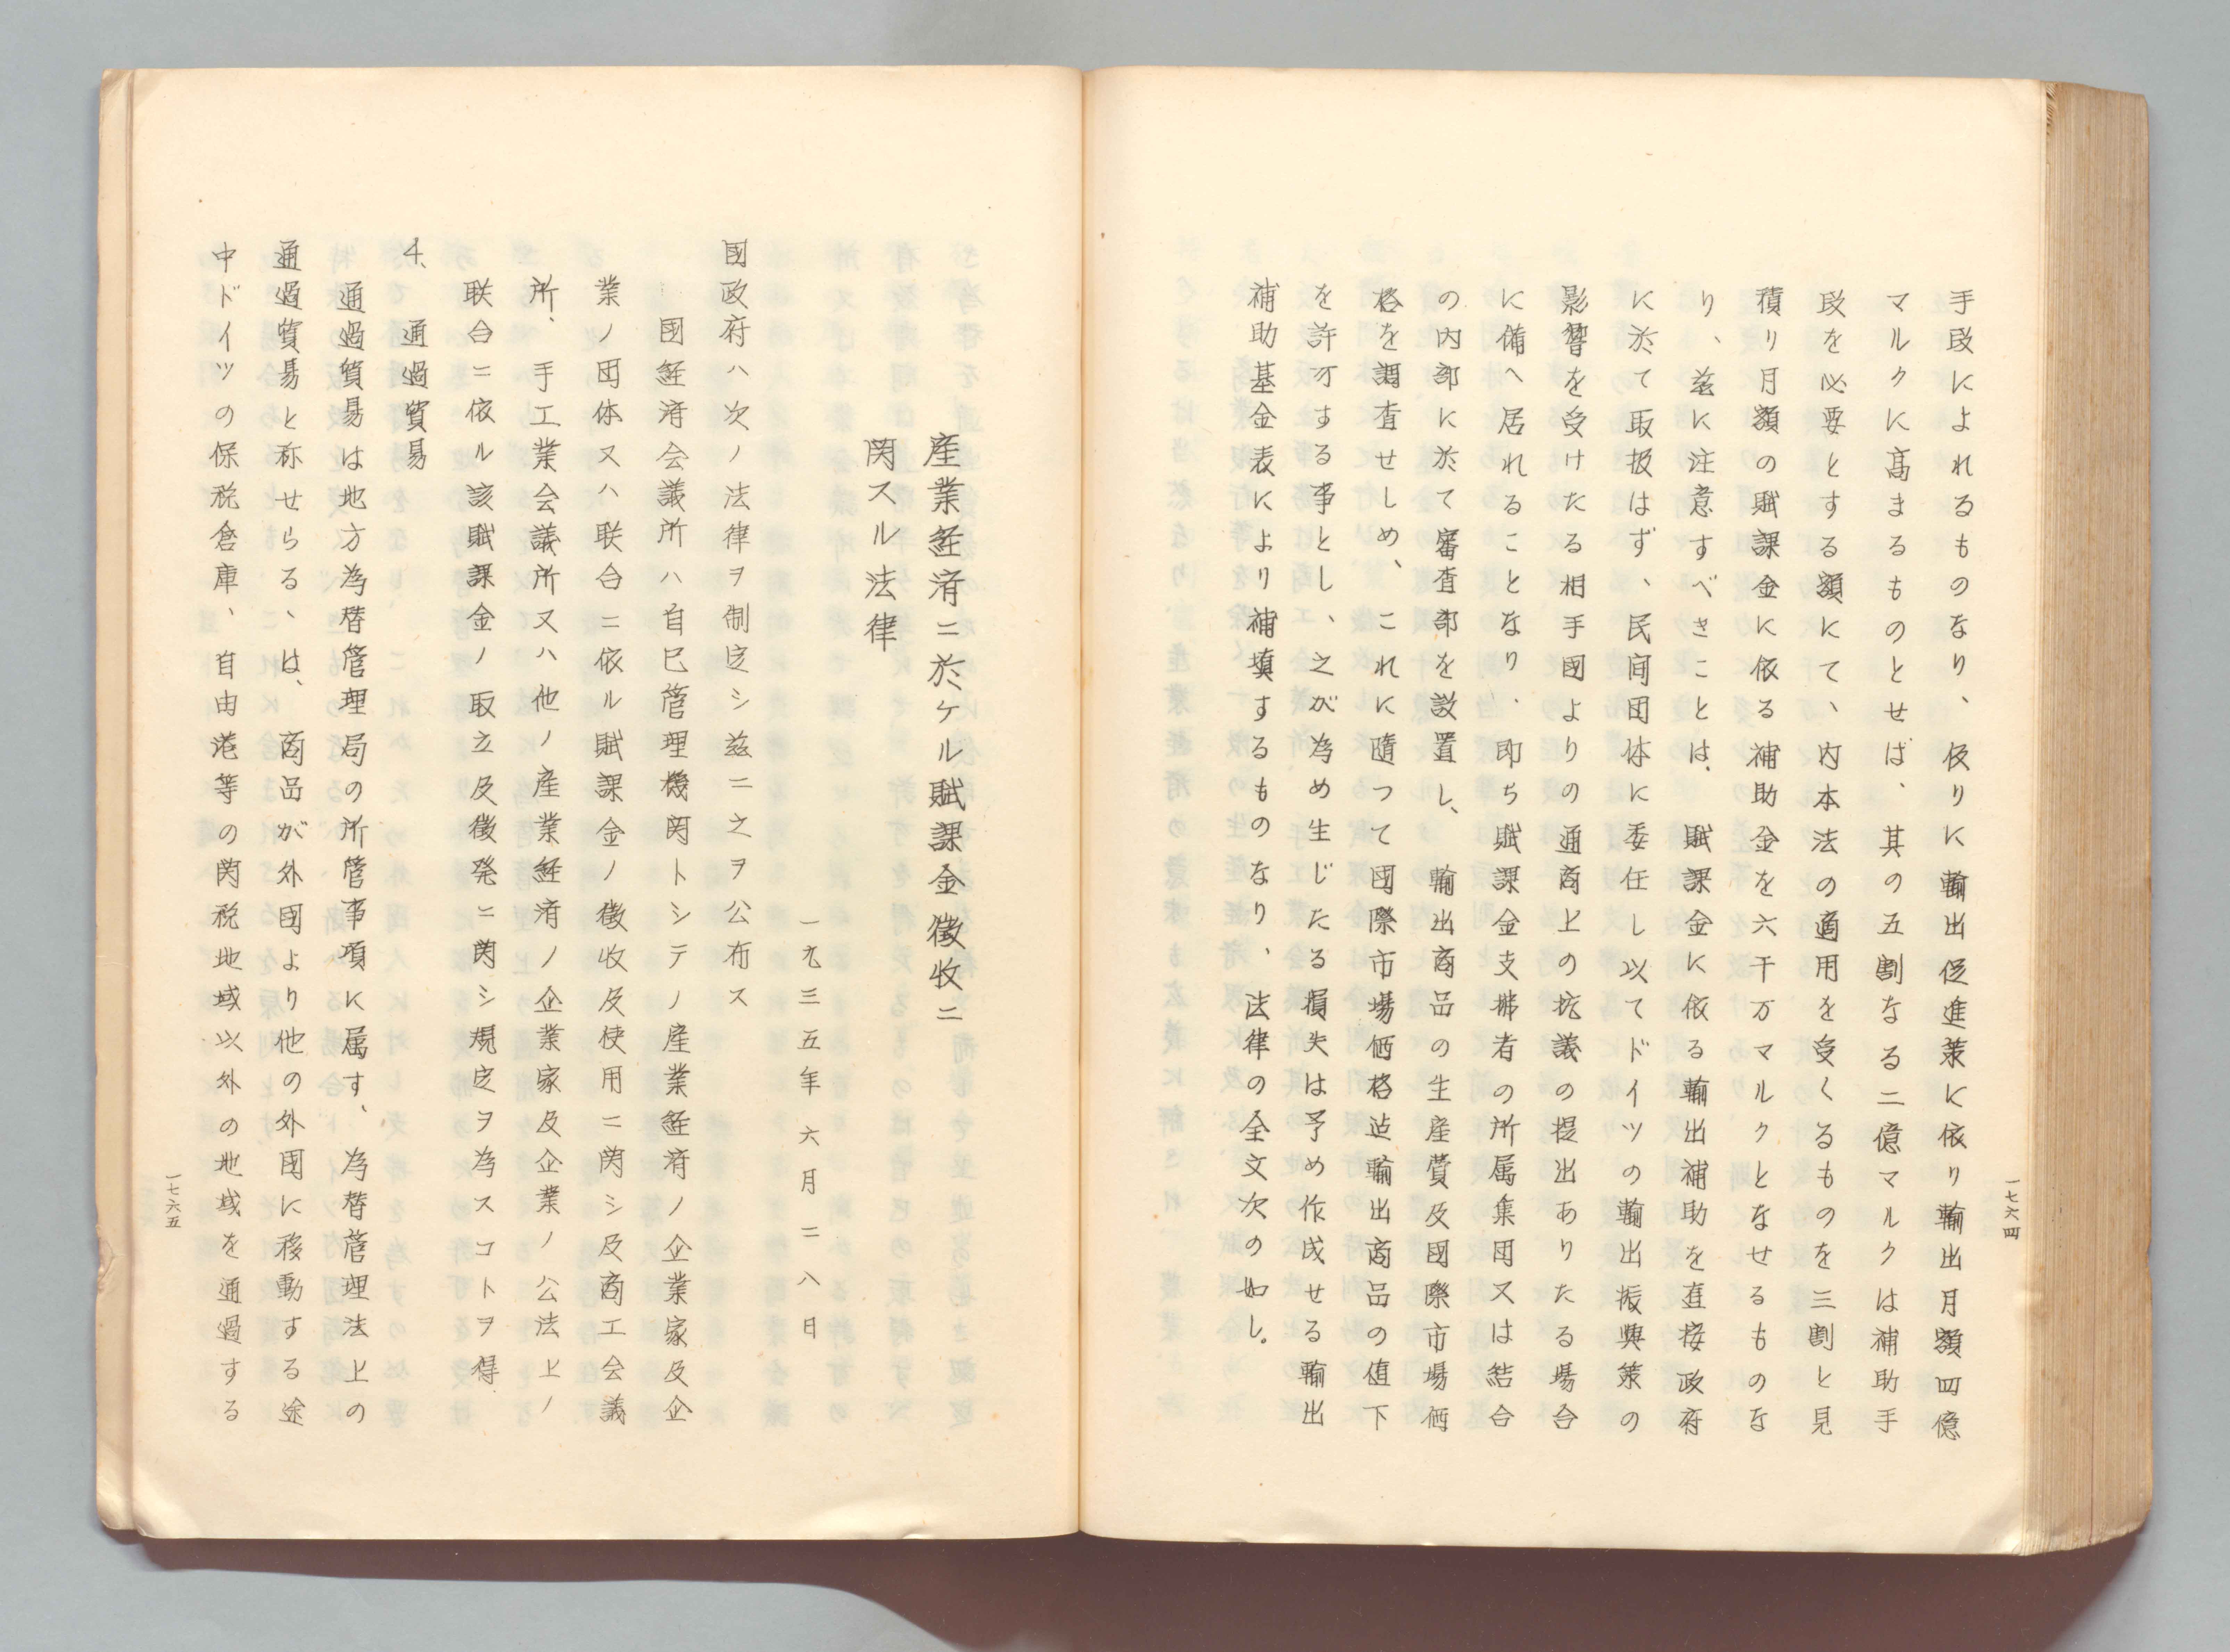 手段によれるものなり、仮りに輸出促進策に依り輸出月額四億
マルクに高まるものとせば、其の五割なる二億マルクは補助手
段を必要とする額にて、内本法の適用を受くるものを三割と見
積り月額の賦課金に依る補助金を六千万マルクとなせるものな
り、茲に注意すべきことは、賦課金に依る輸出補助を直接政府
に於て取扱はず、民间団体に委任し以てドイツの輸出振興策の
影響を受けたる相手國よりの通商上の抗議の提出ありたる場合
に備へ居れることなり、即ち賦課金支拂者の所属集団又は結合
の内部に於て審査部を設置し、輸出商品の生産費及國際市場価
格を調査せしめ、これに隨つて國際市場価格迄輸出商品の値下
を許可する事とし、之が為め生じたる損失は予め作成せる輸出
補助基金表により補填するものなり、法律の全文次の如し。
一七六四
産業経済ニ於ケル賦課金徴收ニ
関スル法律
一九三五年六月二八日
國政府ハ次ノ法律ヲ制定シ茲ニ之ヲ公布ス
國経済会議所ハ自己管理機関トシテノ産業経済ノ企業家及企
業ノ団体又ハ联合ニ依ル賦課金ノ徴收及使用ニ関シ及商工会議
所、手工業会議所又ハ他ノ産業経済ノ企業家及企業ノ公法上ノ
联合ニ依ル該賦課金ノ取立及徴発ニ関シ規定ヲ為スコトヲ得
4、通過貿易
通過貿易は地方為替管理局の所管事項に属す、為替管理法上の
通過貿易と称せらる、は、商品が外國より他の外國に移動する途
中ドイツの保税倉庫、自由港等の関税地域以外の地域を通過する
一七六五